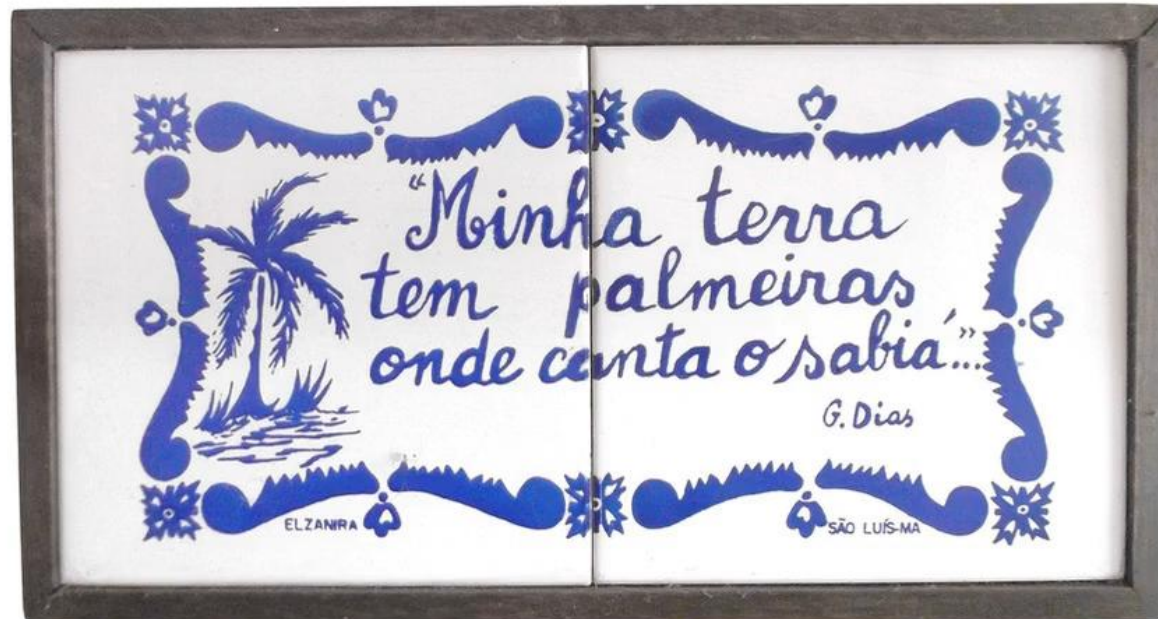 “Minha terra
tem palmeiras
onde canta o sabiá”...
G. Dias
ELZANIRA
SÃO LUÍS-MA